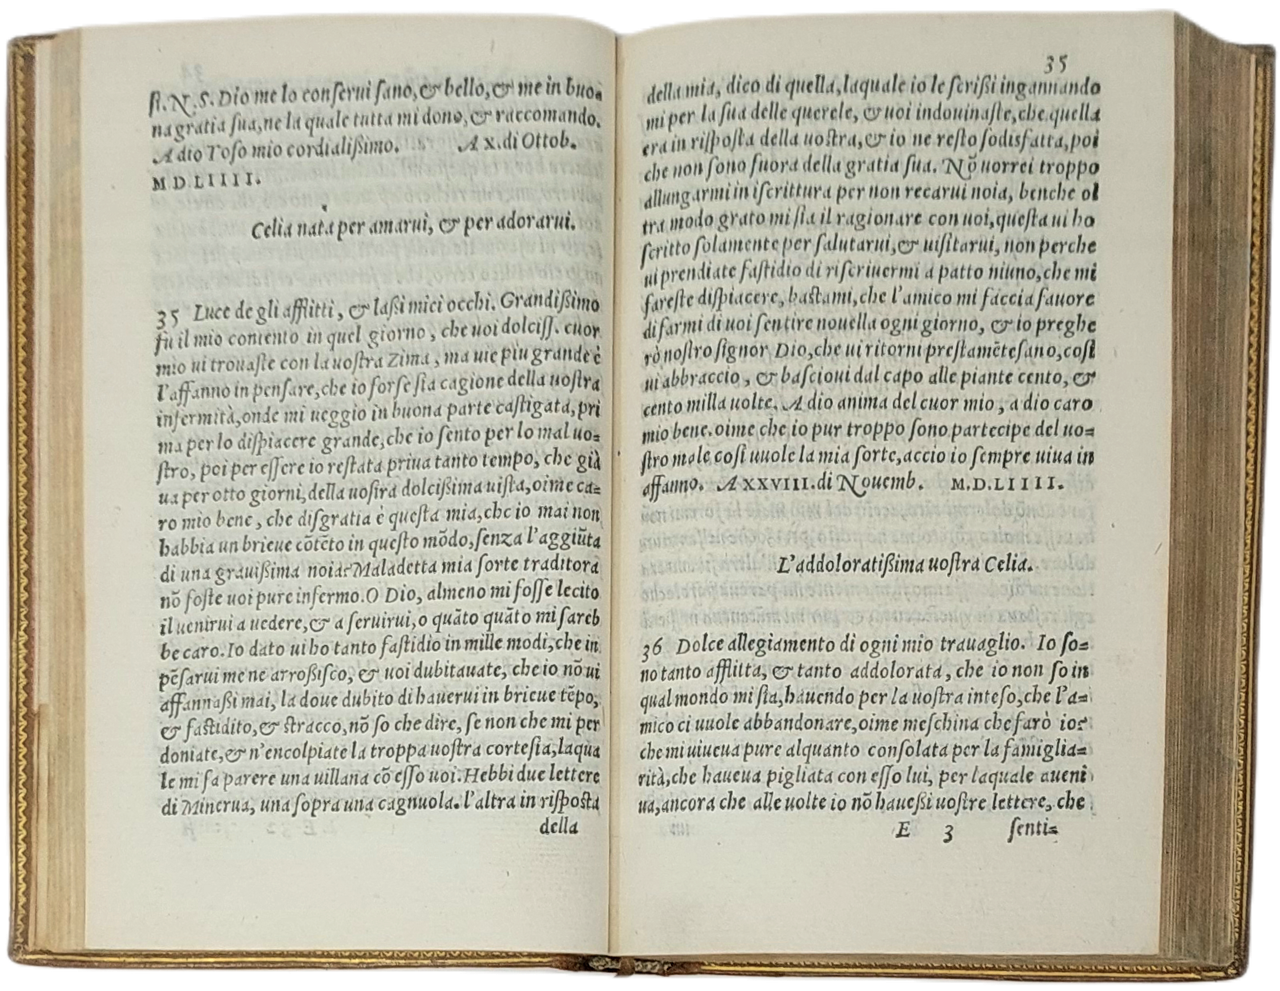 ſi.N.S. Dio me lo conſerui ſano,& bello,& me in buo=
na gratia ſua,ne la quale tutta mi dono,& raccomando.
A dio Toſo mio cordialißimo. A X.di Ottob.
M D L I I I I.
Celia nata per amarui, & per adorarui.
35 Luce de gli afflitti, & laßi miei occhi. Grandißimo
fu il mio contento in quel giorno, che uoi dolciſſ. cuor
mio ui trouaſte con la uoſtra Zima, ma uie piu grande è
l'affanno in penſare,che io forſe ſia cagione della uoſtra
infermità,onde mi ueggio in buona parte caſtigata,pri
ma per lo diſpiacere grande,che io ſento per lo mal uo=
ſtro, poi per eſſere io reſtata priua tanto tempo, che già
ua per otto giorni,della uoſtra dolcißima uiſta,oime ca=
ro mio bene, che diſgratia è queſta mia,che io mai non
habbia un brieue cōtēto in queſto mōdo,ſenza l'aggiūta
di una grauißima noia? Maladetta mia ſorte traditora
nō foſte uoi pure infermo.O Dio, almeno mi foſſe lecito
il uenirui a uedere,& a ſeruirui,o quāto quāto mi ſareb
be caro. Io dato ui ho tanto faſtidio in mille modi,che in
pēſarui me ne arroßiſco, & uoi dubitauate, che io nō ui
affannaßi mai, la doue dubito di hauerui in brieue tēpo,
& faſtidito,& ſtracco,nō ſo che dire, ſe non che mi per
doniate,& n'encolpiate la troppa uoſtra corteſia,laqua
le mi fa parere una uillana cō eſſo uoi. Hebbi due lettere
di Minerua, una ſopra una cagnuola. l'altra in riſpoſta
della
35
della mia, dico di quella, laquale io le ſcrißi ingannando
mi per la ſua delle querele, & uoi indouinaſte,che quella
era in riſpoſta della uoſtra,& io ne reſto ſodisfatta,poi
che non ſono fuora della gratia ſua. Nō uorrei troppo
allungarmi in iſcrittura per non recarui noia, benche ol
tra modo grato mi ſia il ragionare con uoi,queſta ui ho
ſcritto ſolamente per ſalutarui,& uiſitarui, non perche
ui prendiate faſtidio di riſcriuermi a patto niuno,che mi
fareſte diſpiacere, baſtami,che l'amico mi faccia fauore
di farmi di uoi ſentire nouella ogni giorno, & io preghe
rò noſtro ſignor Dio,che ui ritorni preſtamēte ſano,coſi
ui abbraccio, & baſcioui dal capo alle piante cento, &
cento milla uolte. A dio anima del cuor mio, a dio caro
mio bene. oime che io pur troppo ſono partecipe del uo=
ſtro male coſi uuole la mia ſorte,accio io ſempre uiua in
affanno. A XXVIII.di Nouemb. M.D.L I I I I.
L'addoloratißima uoſtra Celia.
36 Dolce allegiamento di ogni mio trauaglio. Io ſo=
no tanto afflitta, & tanto addolorata, che io non ſo in
qual mondo mi ſta,hauendo per la uoſtra inteſo,che l'a=
mico ci uuole abbandonare,oime meſchina che farò io?
che mi uiueua pure alquanto conſolata per la famiglia=
rità,che haueua pigliata con eſſo lui, per laquale aueni
ua,ancora che alle uolte io nō haueßi uoſtre lettere, che
E 3 ſenti=